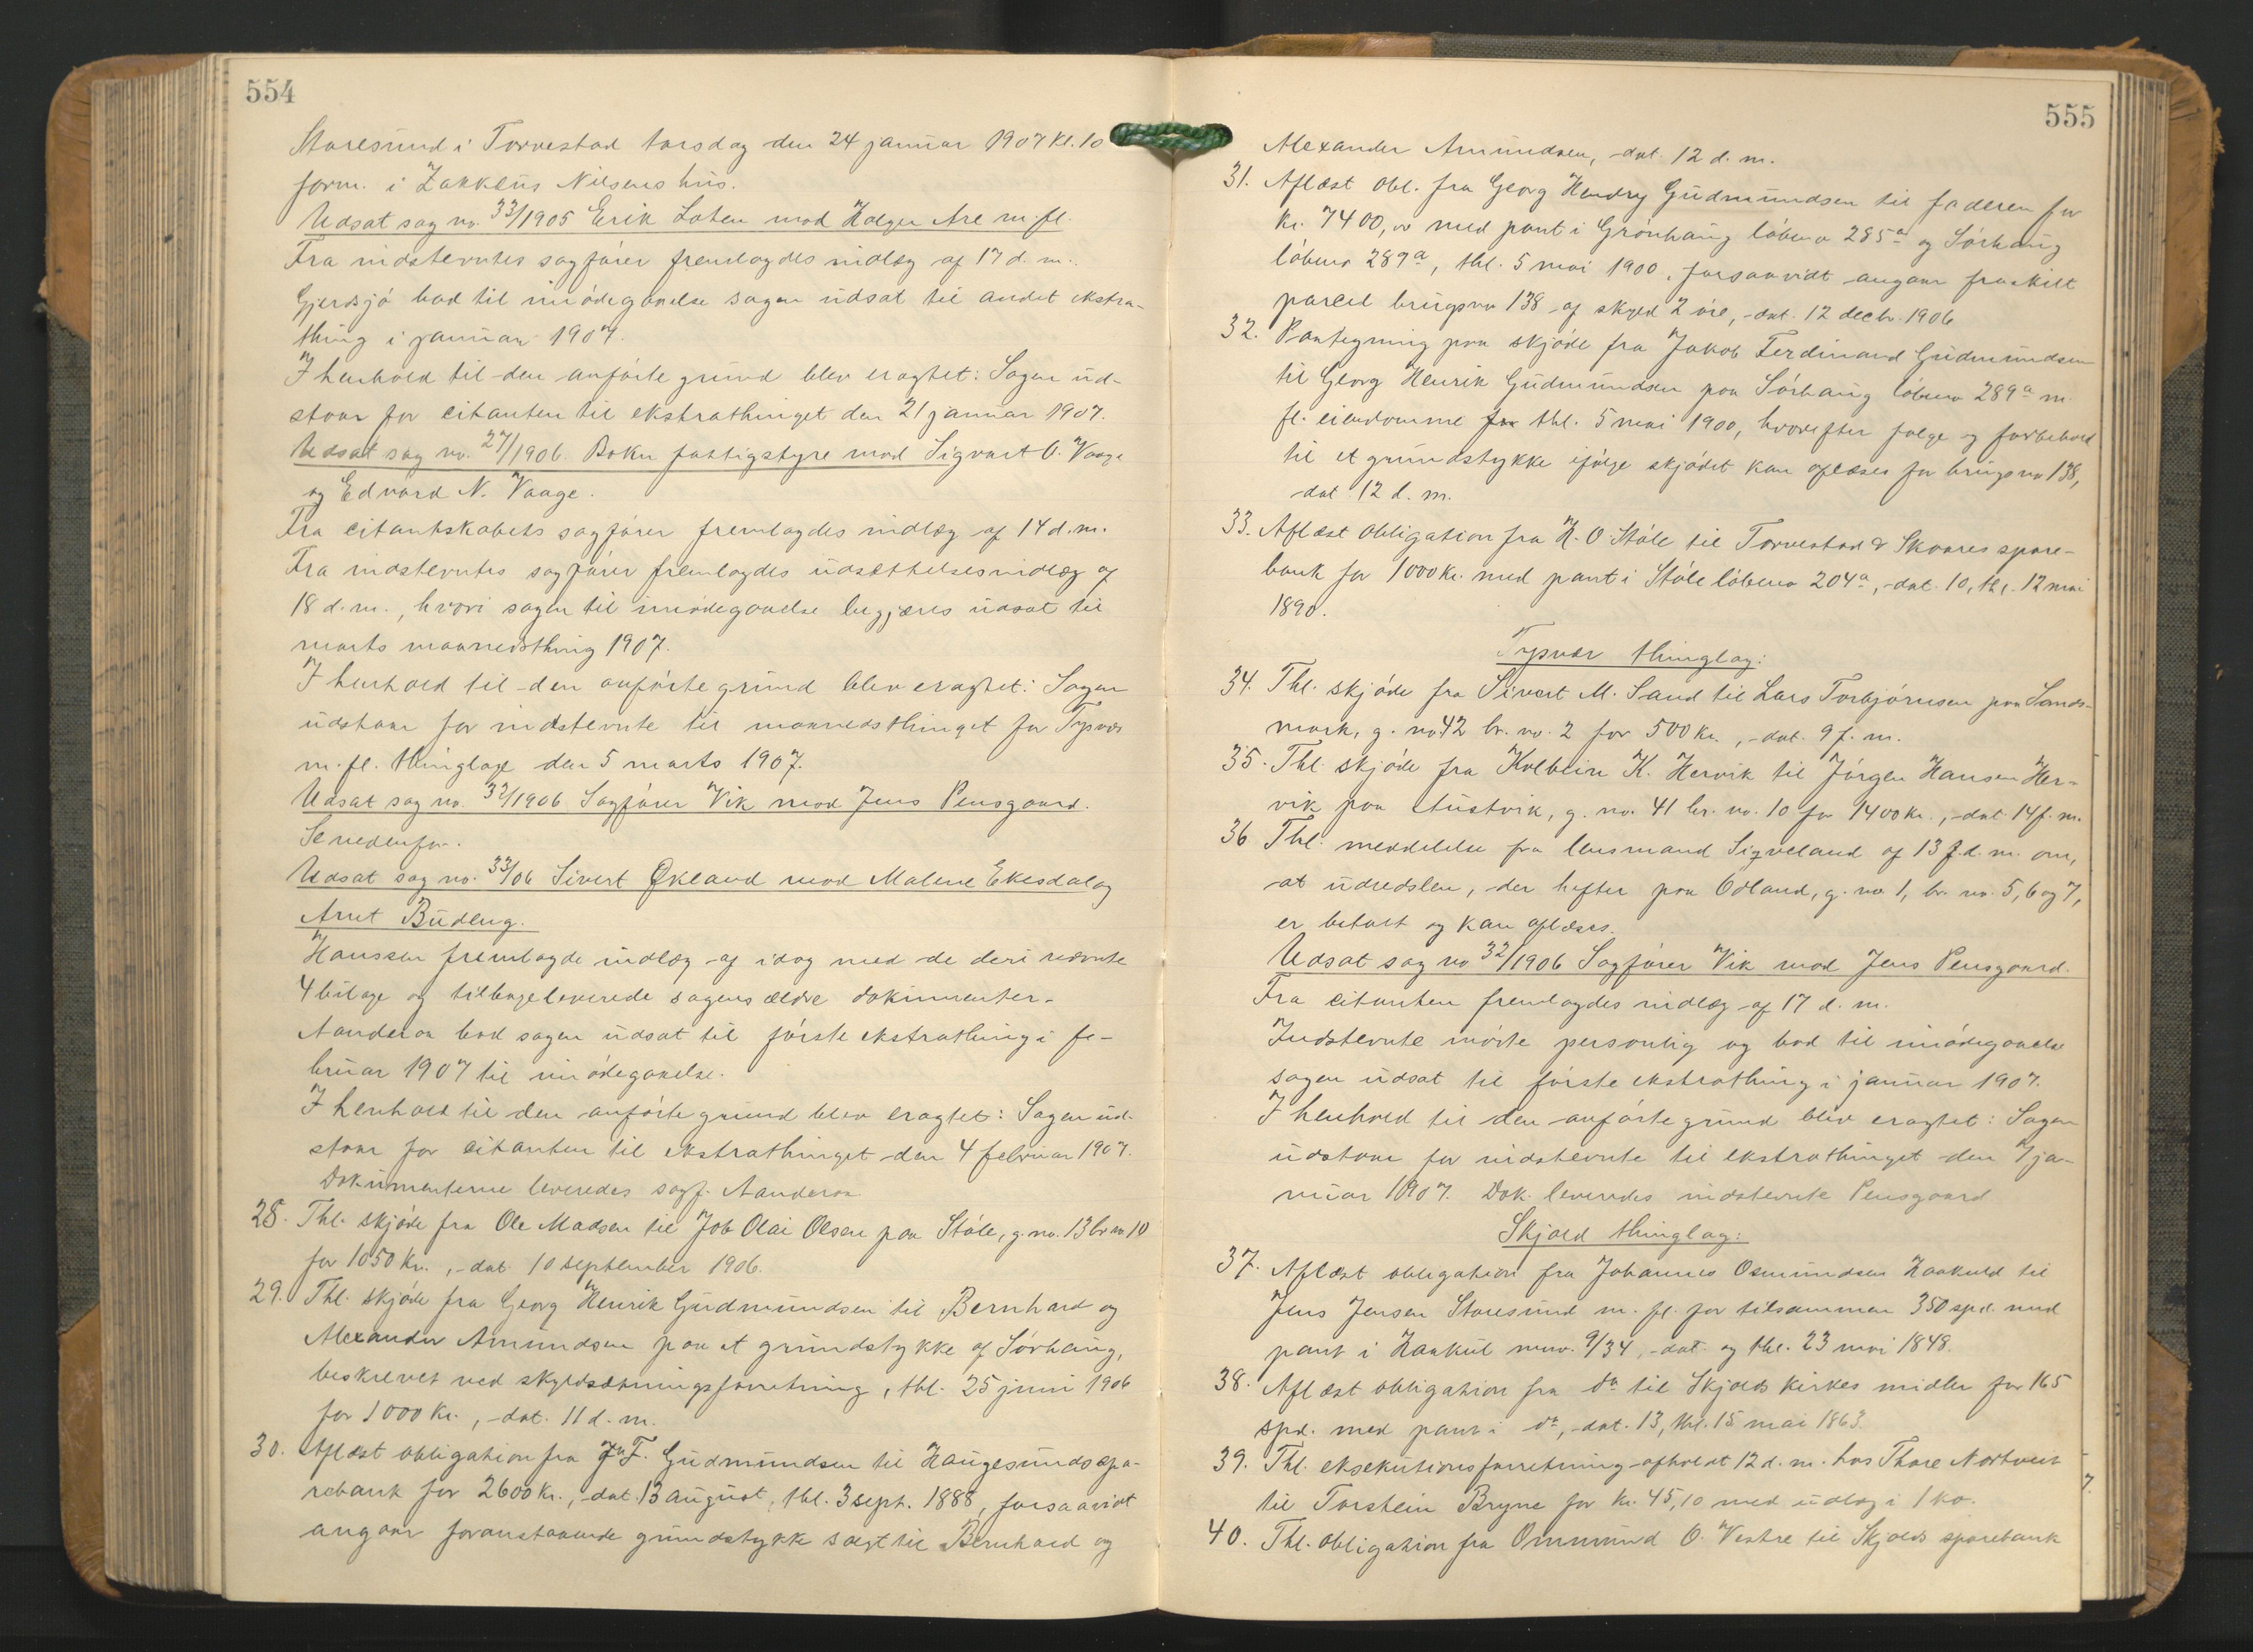 554
Storesund i Torvestad torsdag den 24 januar 1907 kl. 10
form. i Zakkeus Nilsens hus.
Udsat sag no. 33/1905 Erik Loten mod Holger Are m. fl.
Fra indstevntes sagfører fremlagdes indlæg af 17 d. m.
Gjerdsjø bad til imødegaaelse sagen udsat til andet ekstra-
thing i januar 1907.
I henhold til den anførte grund blev eragtet: Sagen ud-
staar for citanten til ekstrathinget den 21 januar 1907.
Udsat sag no. 27/1906 Bokn fattigstyre mod Sigvart O. Vaage
og Edvard N. Vaage.
Fra citantskabets sagfører fremlagdes indlæg af 14 d. m.
Fra indstevntes sagfører fremlagdes udsættelsesindlæg af
18 d. m., hvori sagen til imødegaaelse begjæres udsat til
marts maanedsthing 1907.
I henhold til den anførte grund blev eragtet: Sagen
udstaar for indstevnte til maanedsthinget for Tysvær
m. fl. thinglage den 5 marts 1907.
Udsat sag no. 32/1906 Sagfører Vik mod Jens Pensgaard.
Se nedenfor.
Udsat sag no. 33/06 Sivert Økland mod Malene Ekesdal og
Anet Büdeng.
Hanssen fremlagde indlæg af idag med de deri nævnte
4 bilage og tilbageleverede sagens ældre dokumenter.
Aanderaa bad sagen udsat til første ekstrathing i fe-
bruar 1907 til imødegaaelse.
I henhold til den anførte grund blev eragtet: Sagen ud-
staar for citanten til ekstrathinget den 4 februar 1907.
Dokumenterne leveredes sagf. Aanderaa
28. Thl. skjøde fra Ole Madsen til Job Olai Olsen paa Støle, g. no. 13 br no 10
for 1050 kr., dat. 10 september 1906.
29. Thl. skjøde fra Georg Henrik Gudmundsen til Bernhard og
Alexander Amundsen paa et grundstykke af Sørhaug,
beskrevet ved skyldsætningsforretning, thl. 25 juni 1906
for 1000 kr., dat. 11 d. m.
30. Aflæst obligation fra J. F. Gudmundsen til Haugesunds spa-
rebank for 2600 kr., dat. 13 august, thl. 3 sept. 1888, forsaavidt
angaar foranstaaende grundstykke solgt til Bernhard og
555
Alexander Amundsen, dat. 12 d. m.
31. Aflæst obl. fra Georg Hendry Gudmundsen til faderen for
kr. 7400,00 med pant i Grønhaug løbeno 285a og Sørhaug
løbeno 289a, thl. 5 mai 1900, forsaavidt angaar fraskilt
parcel brugsno 138 af skyld 2 øre, dat. 12 decbr. 1906
32. Paategning paa skjøde fra Jakob Ferdinand Gudmundsen
til Georg Henrik Gudmundsen paa Sørhaug løbeno 289a m.
fl. eiendomme thl. 5 mai 1900, hvorefter følge og forbehold
til et grundstykke ifølge skjødet kan aflæses for brugsno 138,
dat. 12 d. m.
33. Aflæst obligation fra H. O. Støle til Torvestad & Skaares spare-
bank for 1000 kr. med pant i Støle løbeno 204a, dat. 10, thl. 12 mai
1890.
Tysvær thinglag:
34. Thl. skjøde fra Sivert M. Sand til Lars Torbjørnsen paa Sands-
mark, g. no 42 br. no. 2 for 500 kr., dat. 9 f. m.
35. Thl. skjøde fra Kolbein K. Hervik til Jørgen Hansen Her-
vik paa Austvik, g. no. 41 br. no. 10 for 1400 kr., dat. 14 f. m.
36 Thl. meddelelse fra lensmand Sigveland af 13 d. m. om,
at udredslen, der hefter paa Ødland, g. no 1, br. no. 5, 6 og 7,
er betalt og kan aflæses.
Udsat sag no 32/1906 Sagfører Vik mod Jens Pensgaard.
Fra citanten fremlagdes indlæg af 17 d. m.
Indstevnte mødte personlig og bad til imødegaaelse
sagen udsat til første ekstrathing i januar 1907.
I henhold til den anførte grund blev eragtet: Sagen
udstaar for indstevnte til ekstrathinget den 7 ja-
nuar 1907. Dok. leveredes indstevnte Pensgaard
Skjold thinglag:
37. Aflæst obligation fra Johannes Osmundsen Haakuld til
Jens Jensen Storesund m. fl. for tilsammen 350 spd. med
pant i Haakul mno. 9/34, dat. og thl. 23 mai 1848.
38. Aflæst obligation fra do til Skjolds kirkes midler for 165
spd. med pant i do, dat. 13, thl. 15 mai 1863.
39. Thl. eksekutionsforretning afholdt 12 d. m. hos Thore Nortveit
til Torstein Bryne for kr. 45,10 med udlæg i 1 ko.
40. Thl. obligation fra Ommund O. Vestre til Skjolds sparebank